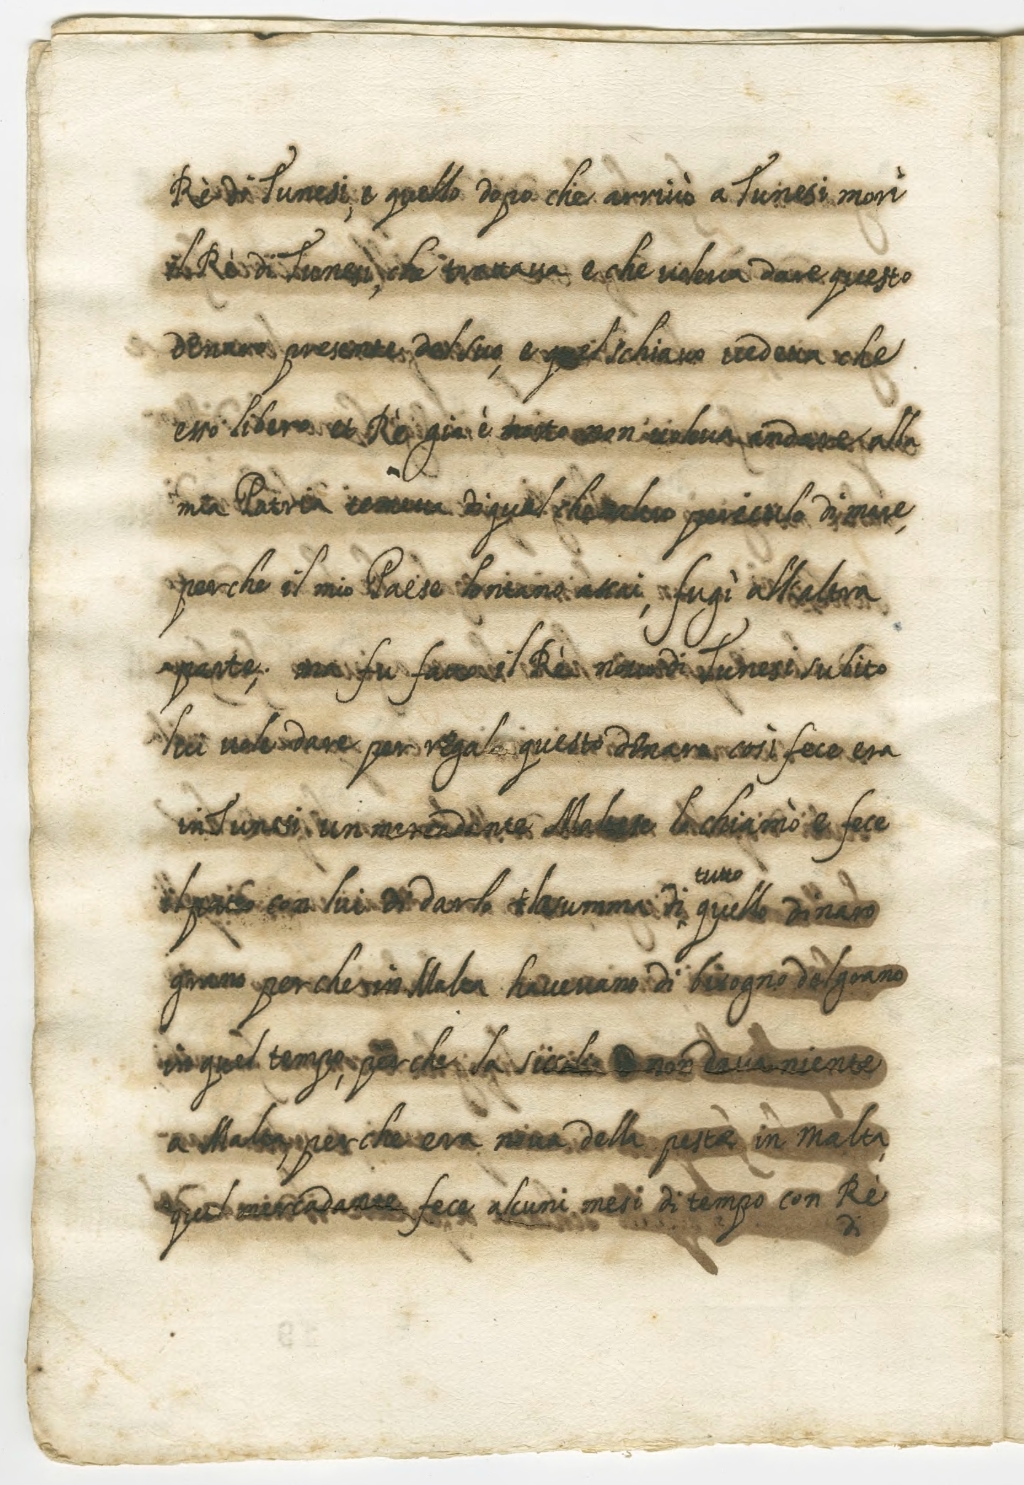 Rè di Tunesi, e quello dopo che arrivò a Tunesi morì
il Rè di Tunesi, che trattaua e che voleua dare questo
denaro presente del suo, e quel schiauo uedeua che
esso libero et Rè già è morto non voleua andare alla
mia Patria temeua di quel che pericolo di mare,
perche il mio Paese lontano assai, fugì all'altra
parte, ma fu fatto il Rè nouo di Tunesi subito
lui uole dare per regalo questo denaro così fece era
in Tunesi un mercadante Maltese lo chiamò e fece
il patto con lui di darlo la summa di tutto quello dinaro
grano perche in Malta haueuano di bisogno del grano
in quel tempo, perche la non daua niente
a Malta, perche era della peste in Malta,
quel mercadante fece alcuni mesi di tempo con Rè
di